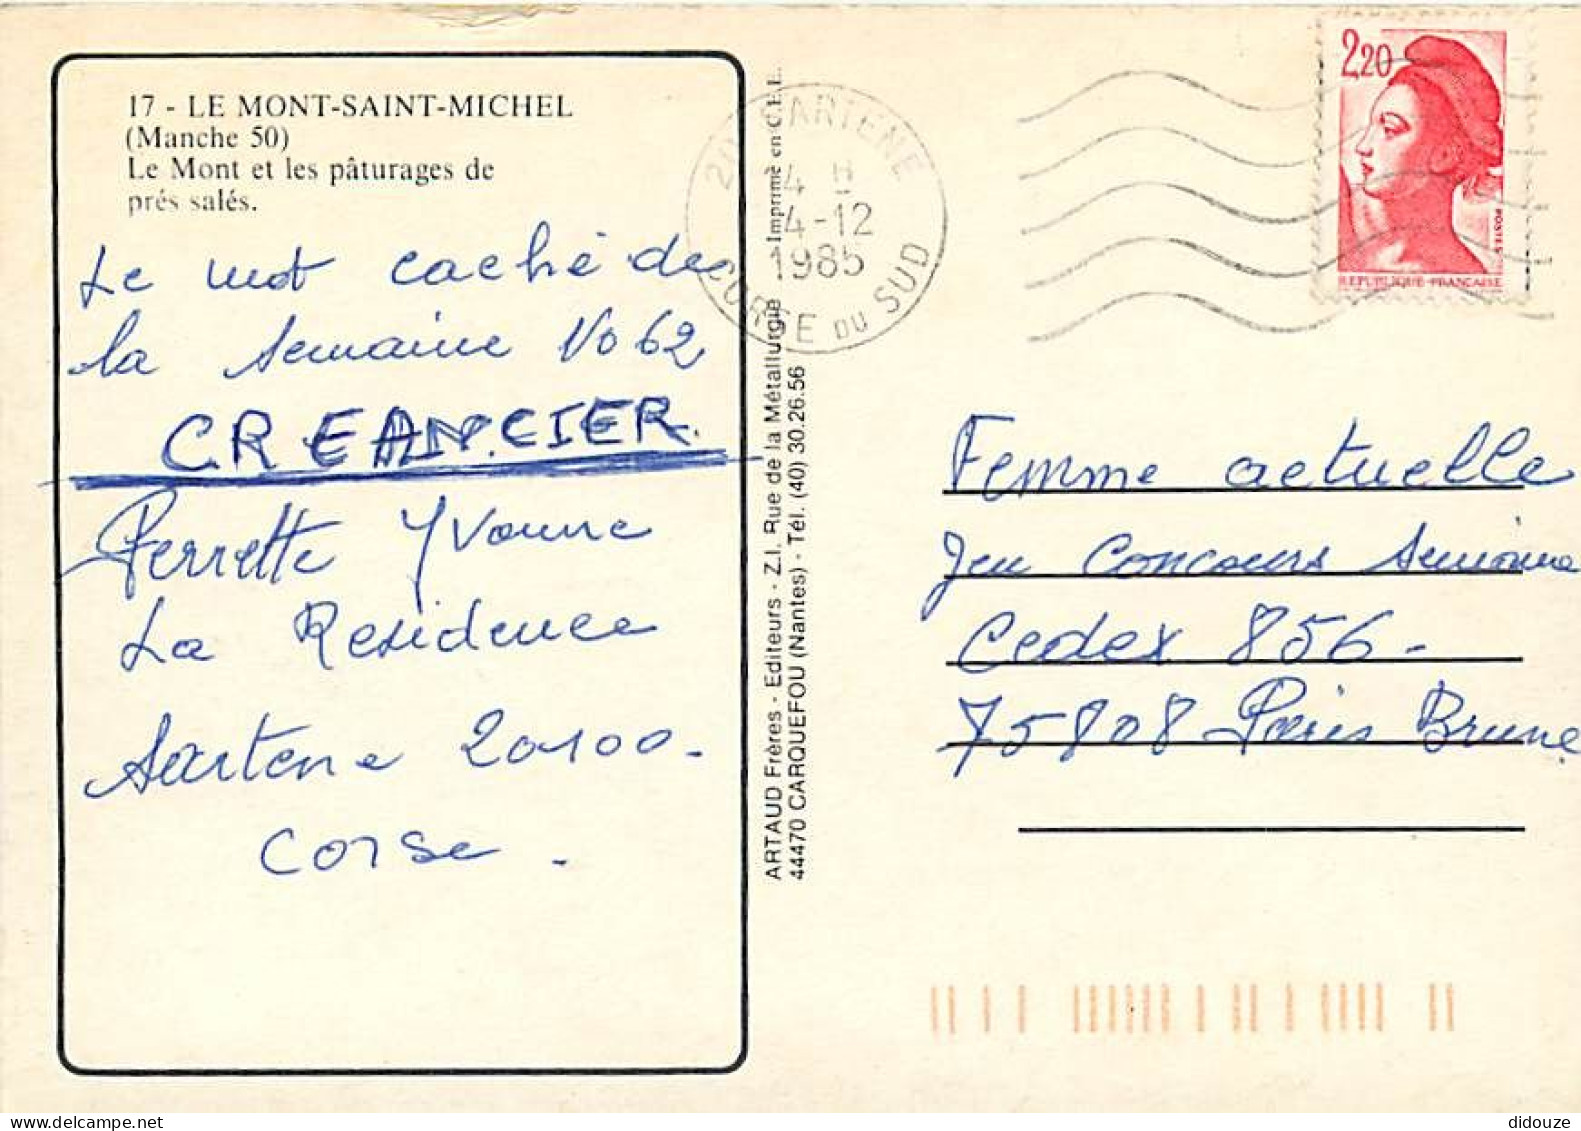 17 - LE MONT-SAINT-MICHEL
(Manche 50)
Le Mont et les pâturages de
prés salés.
Le mot caché de
la semaine No 62
CREANCIER
Perrette Yvonne
La Residence
Sartene 20100.
Corse.
ARTAUD Frères - Editeurs - Z.I. Rue de la Métallurgie Imprimé en C.E.E.
44470 CARQUEFOU (Nantes) - Tél. (40) 30.26.56
SARTENE
4 H
4-12
1985
CORSE DU SUD
2,20
POSTES
REPUBLIQUE FRANÇAISE
Femme actuelle
Jeu Concours
Cedex 856-
75808 Paris Brune
didouze